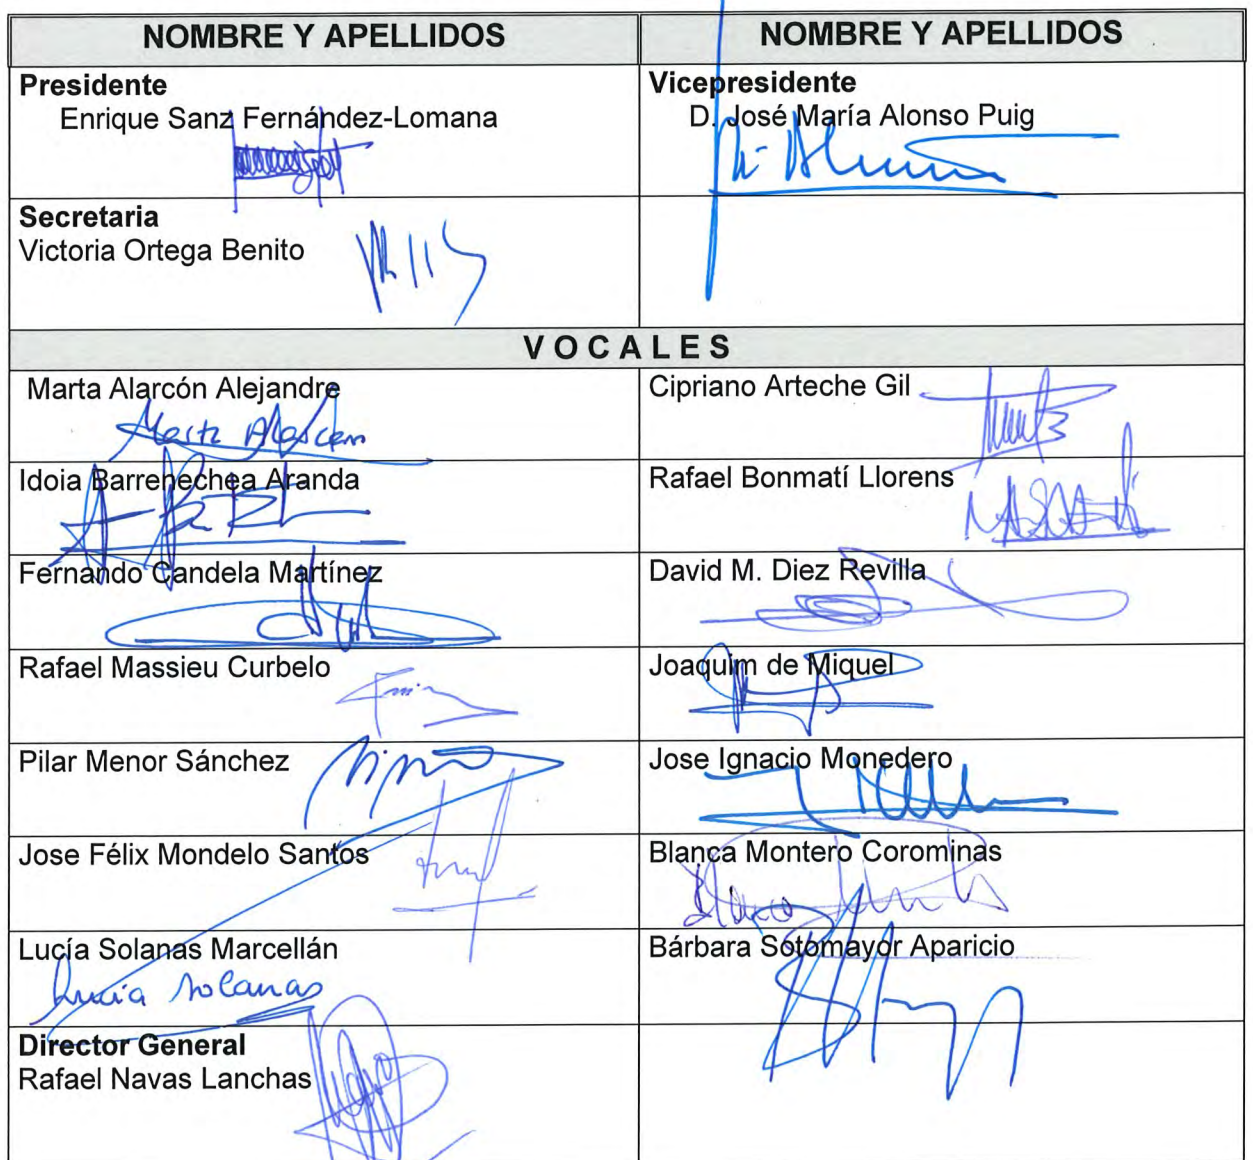 NOMBRE Y APELLIDOS
NOMBRE Y APELLIDOS
Presidente
Enrique Sanz Fernández-Lomana
Vicepresidente
D. José María Alonso Puig
Secretaria
Victoria Ortega Benito
VOCALES
Marta Alarcón Alejandre
Marta Alarcón
Cipriano Arteche Gil
Idoia Barrenechea Aranda
Rafael Bonmatí Llorens
Fernando Candela Martínez
David M. Diez Revilla
Rafael Massieu Curbelo
Joaquim de Miquel
Pilar Menor Sánchez
Jose Ignacio Monedero
Jose Félix Mondelo Santos
Blanca Montero Corominas
Blanca
Lucía Solanas Marcellán
Lucía Solanas
Bárbara Sotomayor Aparicio
Director General
Rafael Navas Lanchas